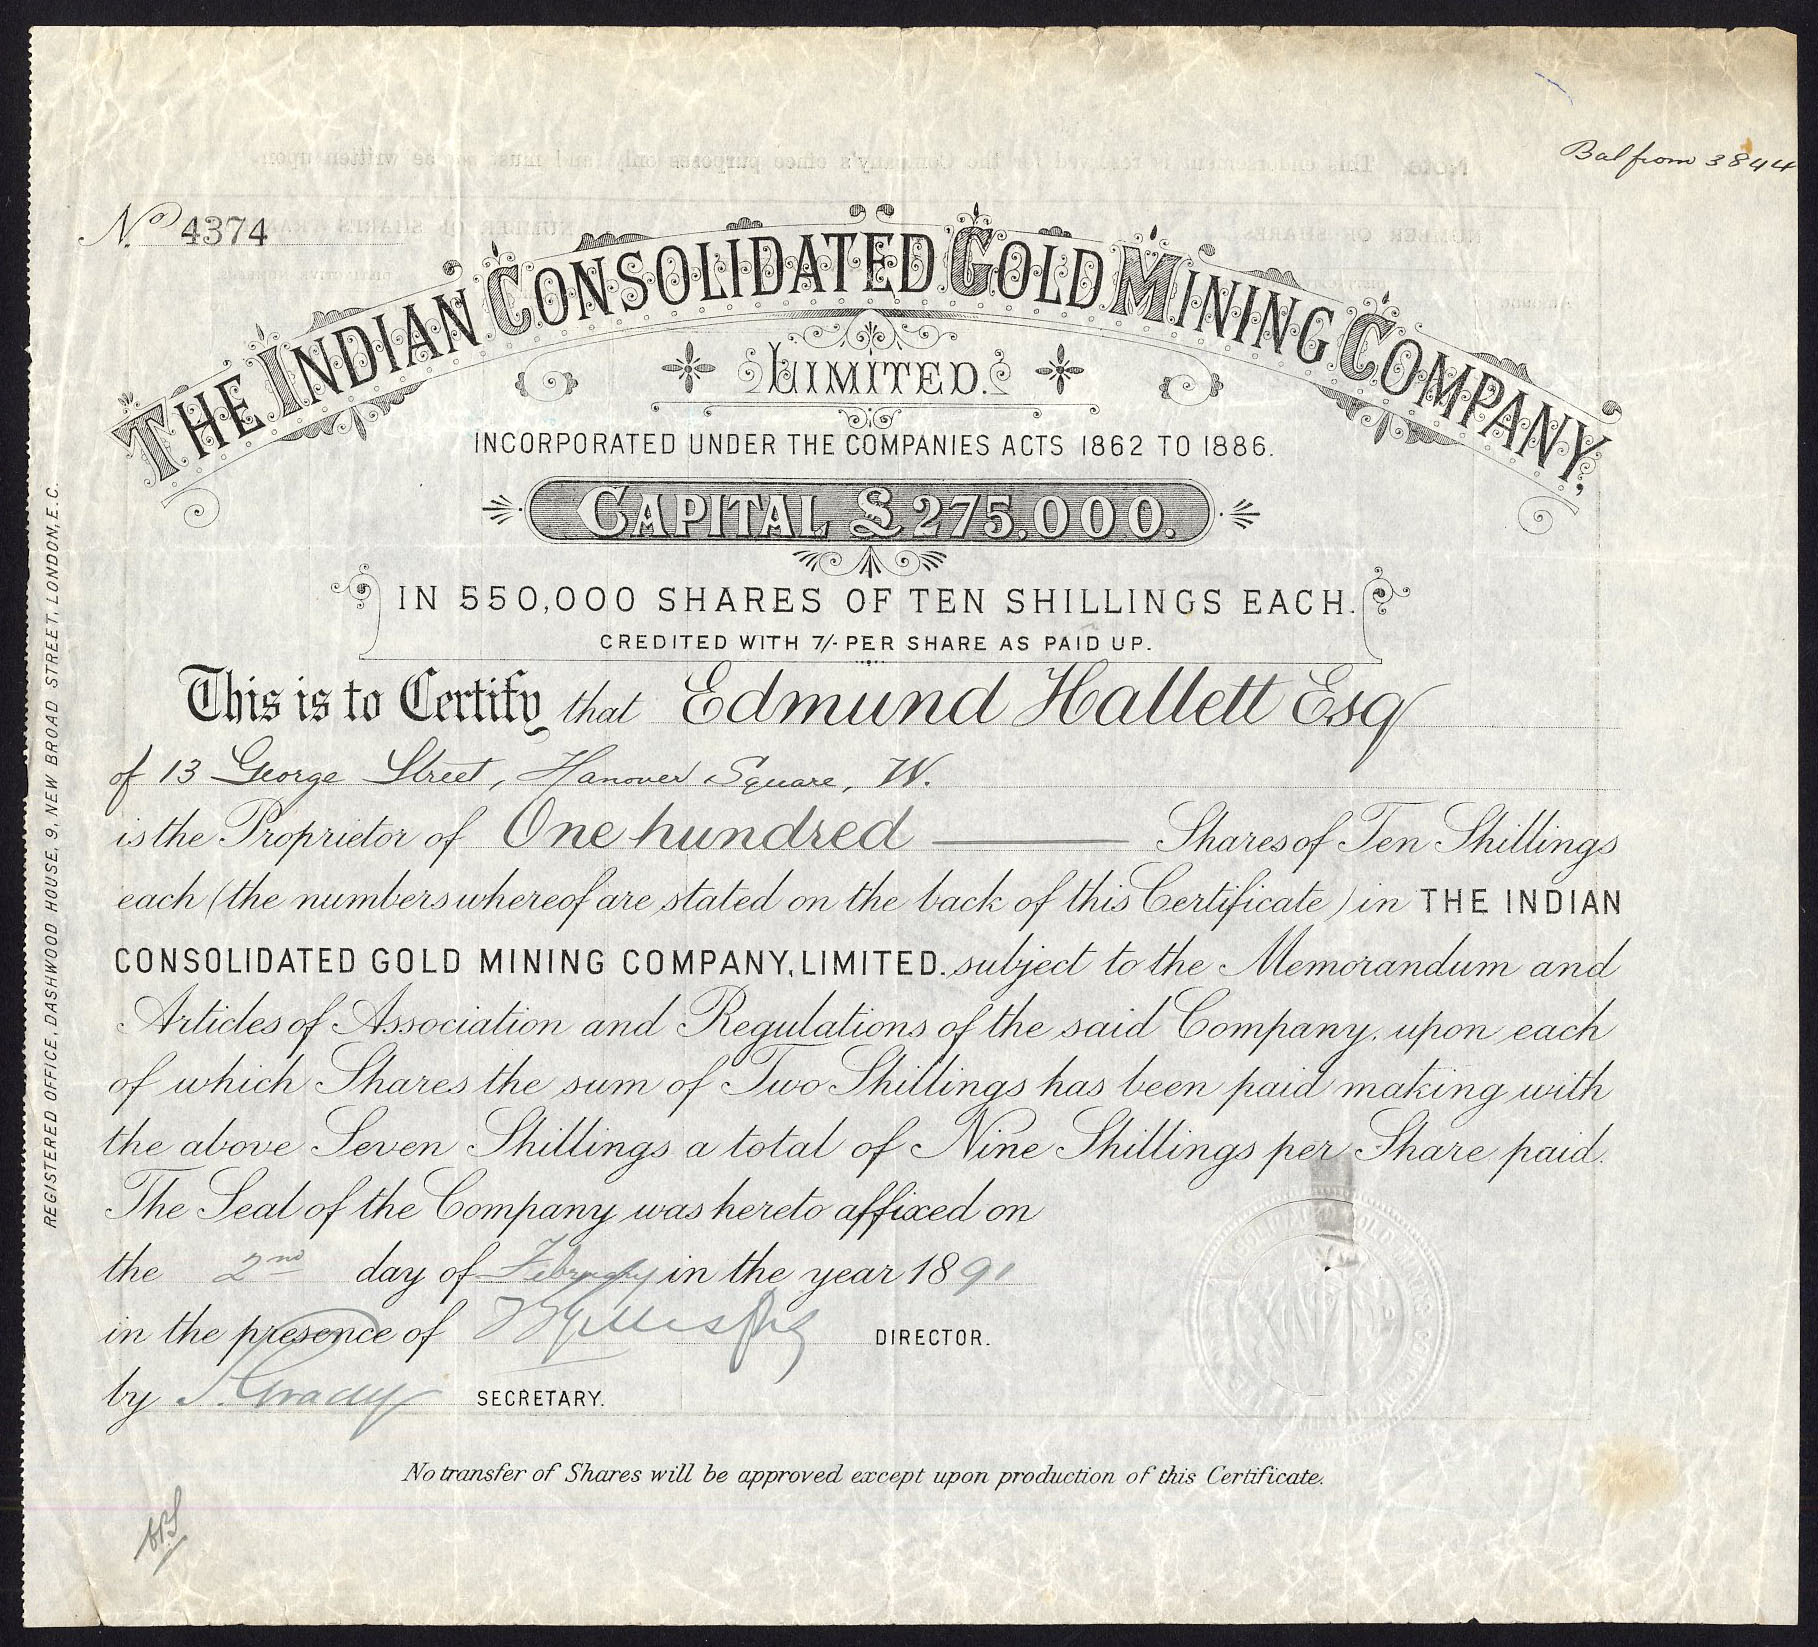 Bal from 3844
No 4374
THE INDIAN CONSOLIDATED GOLD MINING COMPANY,
LIMITED.
INCORPORATED UNDER THE COMPANIES ACTS 1862 TO 1886.
CAPITAL £275,000.
IN 550,000 SHARES OF TEN SHILLINGS EACH.
CREDITED WITH 7/- PER SHARE AS PAID UP.
This is to Certify that Edmund Hallett Esq
of 13 George Street, Hanover Square, W.
is the Proprietor of One hundred Shares of Ten Shillings
each (the numbers whereof are stated on the back of this Certificate) in THE INDIAN
CONSOLIDATED GOLD MINING COMPANY, LIMITED. subject to the Memorandum and
Articles of Association and Regulations of the said Company, upon each
of which Shares the sum of Two Shillings has been paid making with
the above Seven Shillings a total of Nine Shillings per Share paid.
The Seal of the Company was hereto affixed on
the 2nd day of February in the year 1891
in the presence of DIRECTOR.
by J. Grady SECRETARY.
No transfer of Shares will be approved except upon production of this Certificate.
REGISTERED OFFICE, DASHWOOD HOUSE, 9, NEW BROAD STREET, LONDON, E.C.